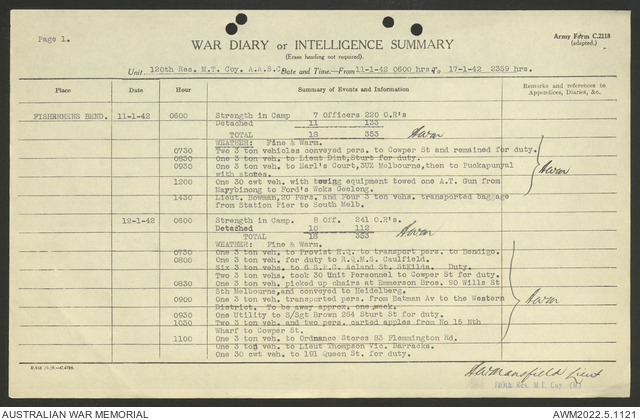 Page 1.
WAR DIARY or INTELLIGENCE SUMMARY
(Erase heading not required).
Army Form C.2118
(adapted.)
Unit 120th Res. M.T. Coy. A.A.S.C. Date and Time—From 11-1-42 0600 hrs. To 17-1-42 2359 hrs.
Place Date Hour Summary of Events and Information Remarks and references to Appendices, Diaries, &c.
FISHERMENS BEND. 11-1-42 0600 Strength in Camp 7 Officers 220 O.R's
Detached 11 133
TOTAL 18 353
WEATHER: Fine & Warm.
0730 Two 3 ton vehicles conveyed pers. to Cowper St and remained for duty.
0830 One 3 ton veh. to Lieut Dint, Sturt for duty.
0930 One 3 ton veh. to Earl's Court, 3UZ Melbourne, then to Puckapunyal
with stores.
1200 One 30 cwt veh. with towing equipment towed one A.T. Gun from
Mayybinong to Ford's Woks Geelong.
1430 Lieut. Bowman, 20 Pers. and Four 3 ton vehs. transported baggage
from Station Pier to South Melb.
12-1-42 0600 Strength in Camp. 8 Off. 241 O.R's.
Detached 10 112
TOTAL 18 353
WEATHER: Fine & Warm.
0730 One 3 ton veh. to Provist H.Q. to transport pers. to Bendigo.
0800 One 3 ton veh. for duty to R.Q.M.S. Caulfield.
Six 3 ton vehs. to 6 Acland St. StKilda. Duty.
Two 3 ton vehs. took 30 Unit Personnel to Cowper St for duty.
0830 One 3 ton veh. picked up chairs at Emmerson Bros. 90 Wills St
Sth Melbourne, and conveyed to Heidelberg.
0900 One 3 ton veh. transported pers. from Batman Av to the Western
District. To be away approx. one week.
0930 One Utility to S/Sgt Brown 264 Sturt St for duty.
1030 Two 3 ton veh. and two pers. carted apples from No 15 Nth
Wharf to Cowper St.
1100 One 3 ton veh. to Ordnance Stores 83 Flemmington Rd.
One 3 ton veh. to Lieut Thompson Vic. Barracks.
One 30 cwt veh. to 191 Queen St. for duty.
Mansfield Lieut
120th Res. M.T. Coy
AUSTRALIAN WAR MEMORIAL
AWM2022.5.1121